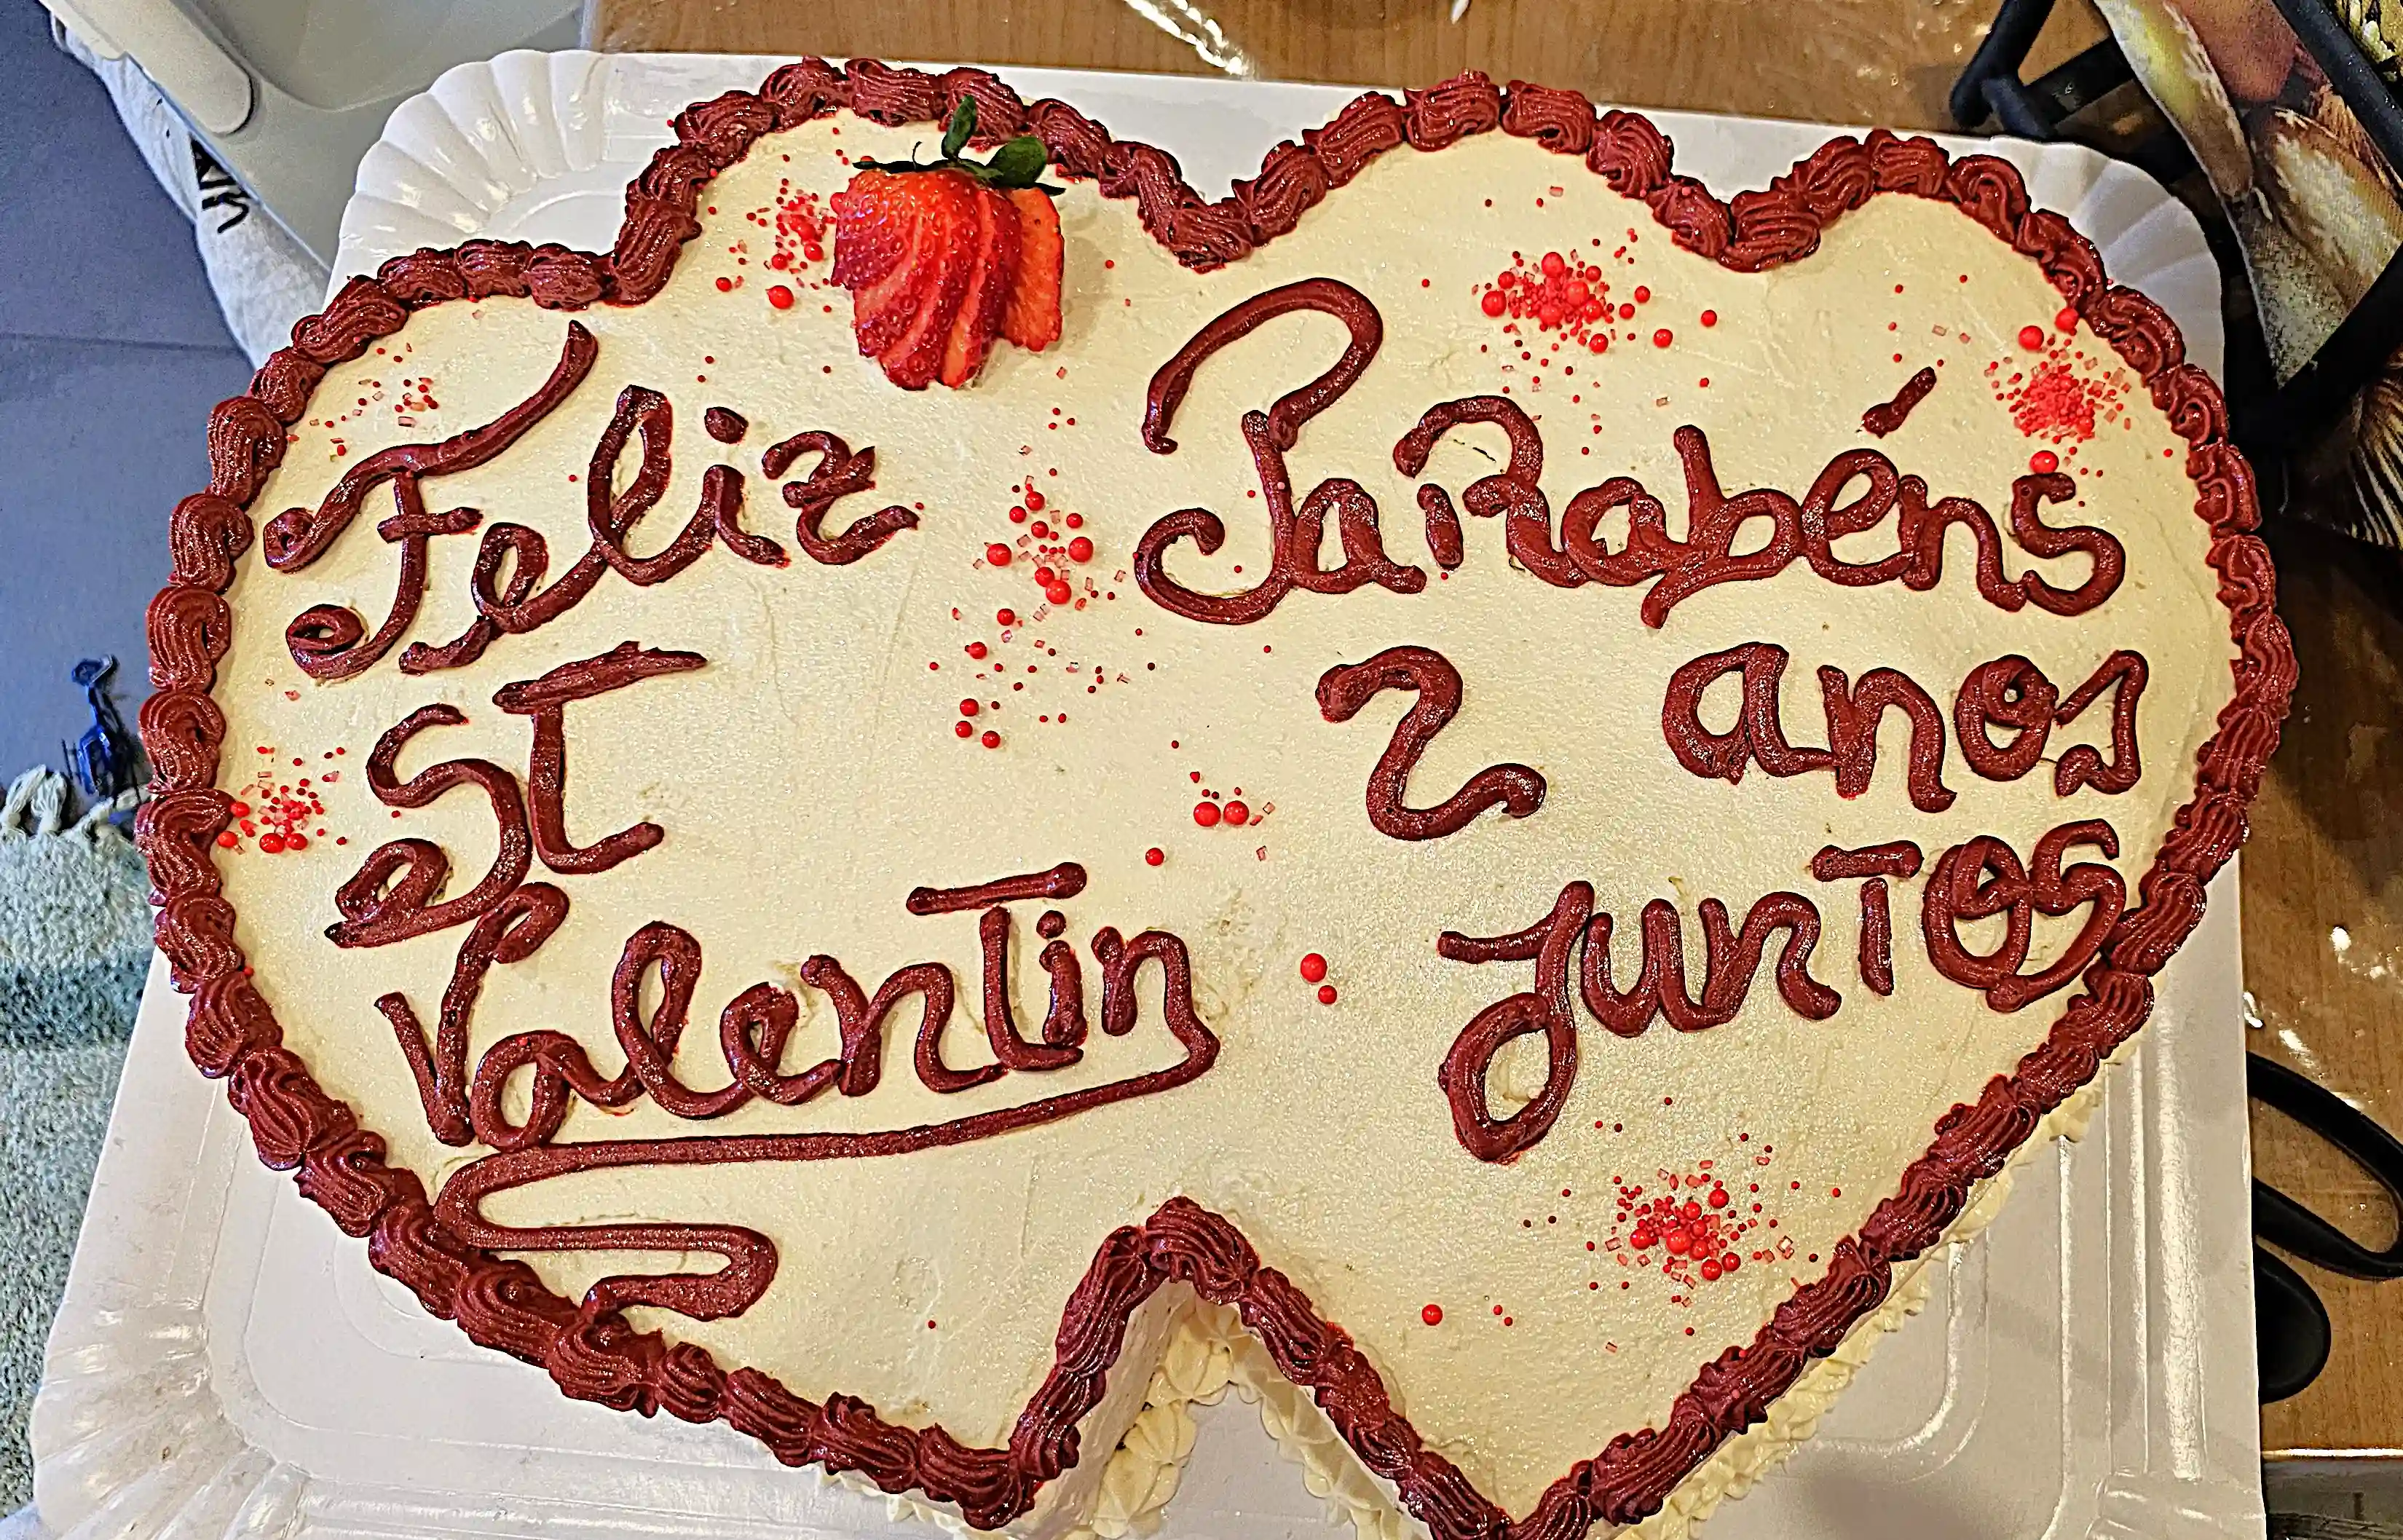 Feliz
ST
Valentin
PaRabéns
2 anos
junTos